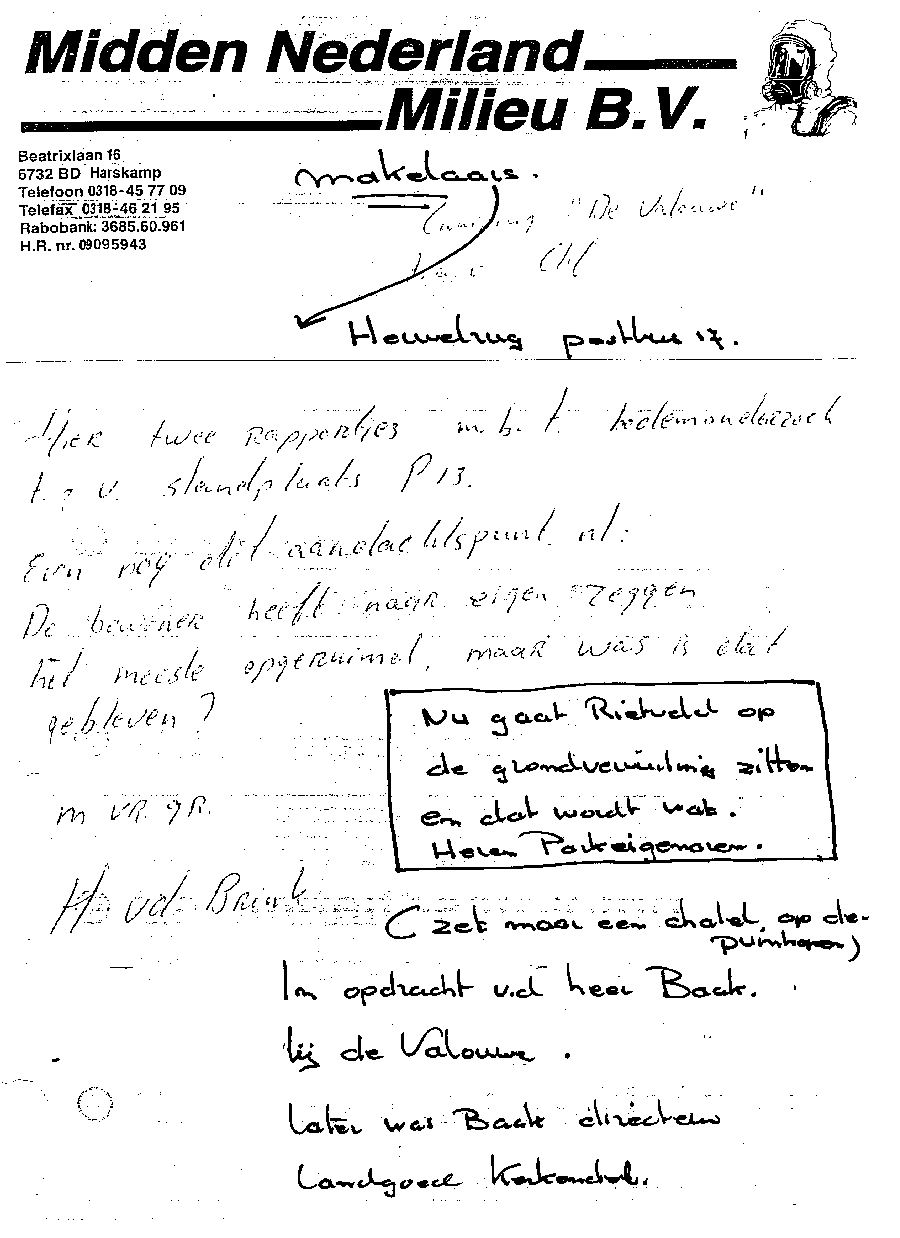 Midden Nederland
Milieu B.V.
Beatrixlaan 16
6732 BD Harskamp
Telefoon 0318-45 77 09
Telefax 0318-46 21 95
Rabobank: 3685.60.961
H.R. nr. 09095943
makelaars.
Camping "De Valouwe"
t.a.v.
postbus 17.
Hier twee rapportjes m.b.t. bodemonderzoek
t.p.v. standplaats P 13.
Even nog dit aandachtspunt nl:
De bewoner heeft naar eigen zeggen
het meeste opgeruimd, maar was is dat
gebleven?
Nu gaat Rietveld op
de grondvervuiling zitten
en dat wordt wat.
Heren Parkeigenaren.
m vr. gr.
H vd Brink
(zet maar een chalet op de
puinhopen)
In opdracht v.d heer Baak.
bij de Valouwe.
Later was Baak directeur
Landgoed